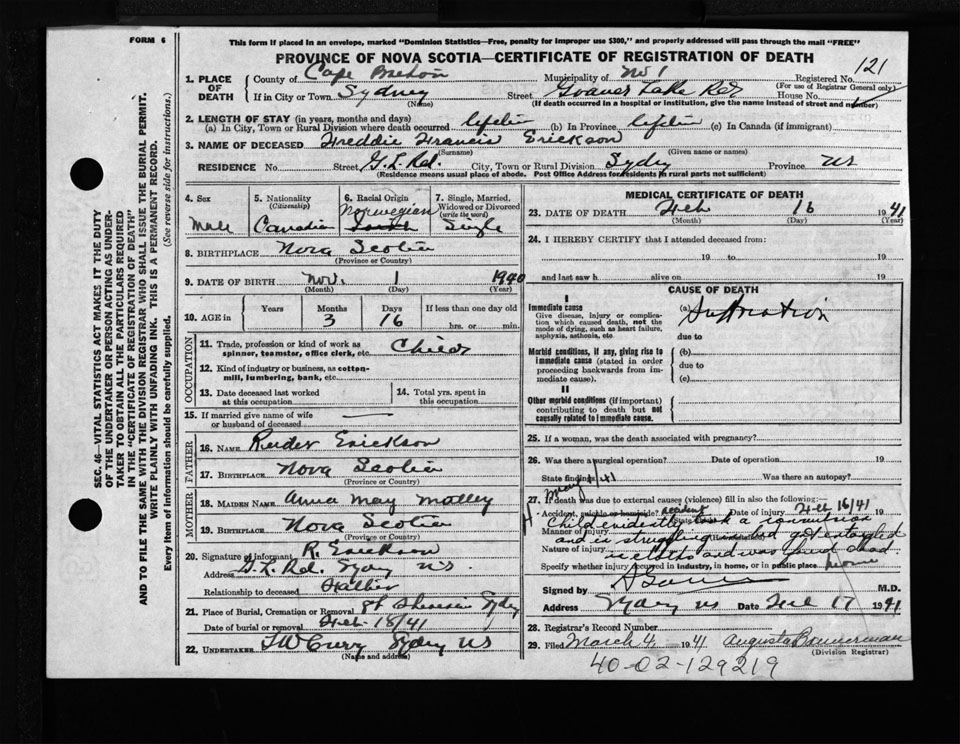 FORM 6
This form if placed in an envelope, marked "Dominion Statistics—Free, penalty for improper use $300," and properly addressed will pass through the mail "FREE"
PROVINCE OF NOVA SCOTIA—CERTIFICATE OF REGISTRATION OF DEATH
1. PLACE OF DEATH County of Cape Breton Municipality of No 1 Registered No. 121
(For use of Registrar General only)
If in City or Town Sydney Street Lake Rd House No.
(Name) (If death occurred in a hospital or institution, give the name instead of street and number)
2. LENGTH OF STAY (in years, months and days)
(a) In City, Town or Rural Division where death occurred lifetime (b) In Province lifetime (c) In Canada (if immigrant)
3. NAME OF DECEASED Freddie Francis Erickson
(Surname) (Given name or names)
RESIDENCE No. Street G.L. Rd. City, Town or Rural Division Sydney Province NS
(Residence means usual place of abode. Post Office Address for residents in rural parts not sufficient)
4. Sex Male
5. Nationality (Citizenship) Canadian
6. Racial Origin Norwegian
7. Single, Married, Widowed or Divorced (write the word) Single
8. BIRTHPLACE Nova Scotia
(Province or Country)
9. DATE OF BIRTH Nov. 1 1940
(Month) (Day) (Year)
10. AGE in Years Months 3 Days 16 If less than one day old hrs. or min.
OCCUPATION
11. Trade, profession or kind of work as spinner, teamster, office clerk, etc. Child
12. Kind of industry or business, as cotton-mill, lumbering, bank, etc.
13. Date deceased last worked at this occupation
14. Total yrs. spent in this occupation
15. If married give name of wife or husband of deceased
FATHER
16. NAME Erickson
17. BIRTHPLACE Nova Scotia
(Province or Country)
MOTHER
18. MAIDEN NAME Anna May
19. BIRTHPLACE Nova Scotia
(Province or Country)
20. Signature of informant R. Erickson
Address G.L. Rd. Sydney N.S.
Relationship to deceased Father
21. Place of Burial, Cremation or Removal Sydney
Date of burial or removal Feb 18/41
22. UNDERTAKER Curry Sydney NS
(Name and address)
MEDICAL CERTIFICATE OF DEATH
23. DATE OF DEATH Feb 16 1941
24. I HEREBY CERTIFY that I attended deceased from:
19 to 19
and last saw h alive on 19
CAUSE OF DEATH
I
Immediate cause
Give disease, injury or complication which caused death, not the mode of dying, such as heart failure, asphyxia, asthenia, etc.
(a) Suffocation
due to
Morbid conditions, if any, giving rise to immediate cause (stated in order proceeding backwards from immediate cause).
(b)
due to
(c)
II
Other morbid conditions (if important) contributing to death but not causally related to immediate cause.
25. If a woman, was the death associated with pregnancy?
26. Was there a surgical operation? Date of operation 19
State findings Was there an autopsy?
27. If death was due to external causes (violence) fill in also the following:
Accident, suicide or homicide? accident Date of injury Feb 16/41
Manner of injury
Nature of injury
Child evidently took a convulsion
and in struggling got entangled
in clothes and was found dead
Specify whether injury occurred in industry, in home, or in public place home
Signed by M.D.
Address Sydney NS Date Feb 17 1941
28. Registrar's Record Number
29. Filed March 4 1941 Augusta Bonnerman
(Division Registrar)
40-02-129219
SEC. 46—VITAL STATISTICS ACT MAKES IT THE DUTY
OF THE UNDERTAKER OR PERSON ACTING AS UNDER-
TAKER TO OBTAIN ALL THE PARTICULARS REQUIRED
IN THE "CERTIFICATE OF REGISTRATION OF DEATH"
AND TO FILE THE SAME WITH THE DIVISION REGISTRAR WHO SHALL ISSUE THE BURIAL PERMIT.
WRITE PLAINLY WITH UNFADING INK. THIS IS A PERMANENT RECORD.
Every item of information should be carefully supplied. (See reverse side for instructions.)